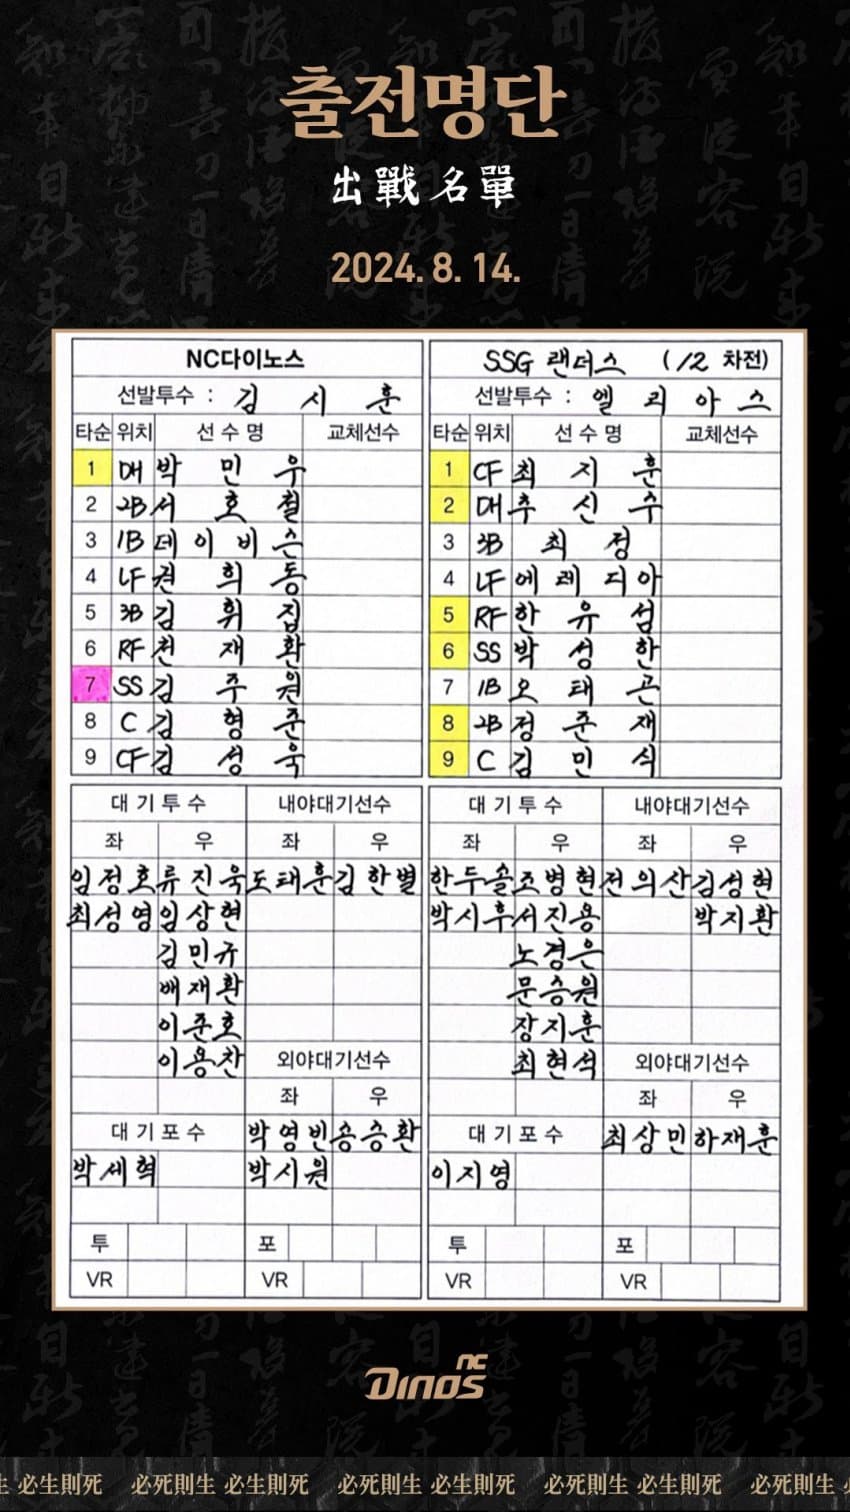 출전명단
出戰名單
2024. 8. 14.
NC다이노스
선발투수 : 김 시 훈
타순 위치 선 수 명 교체선수
1 DH 박 민 우
2 2B 서 호 철
3 1B 데 이 비 슨
4 LF 권 희 동
5 3B 김 휘 집
6 RF 천 재 환
7 SS 김 주 원
8 C 김 형 준
9 CF 김 성 욱
대 기 투 수 내야대기선수
좌 우 좌 우
임정호 류진욱 도태훈 김한별
최성영 임상현
김민규
배재환
이준호
이용찬 외야대기선수
좌 우
대 기 포 수 박영빈 송승환
박세혁 박시원
투 포
VR VR
SSG 랜더스 (12 차전)
선발투수 : 엘 리 아 스
타순 위치 선 수 명 교체선수
1 CF 최 지 훈
2 DH 추 신 수
3 3B 최 정
4 LF 에 레 디 아
5 RF 한 유 섬
6 SS 박 성 한
7 1B 오 태 곤
8 2B 정 준 재
9 C 김 민 식
대 기 투 수 내야대기선수
좌 우 좌 우
한두솔 조병현 전의산 김성현
박시후 서진용 박지환
노경은
문승원
장지훈
최현석 외야대기선수
좌 우
대 기 포 수 최상민 하재훈
이지영
투 포
VR VR
NC
DINOS
必生則死 必死則生 必生則死 必死則生 必生則死 必死則生 必生則死 必死則生